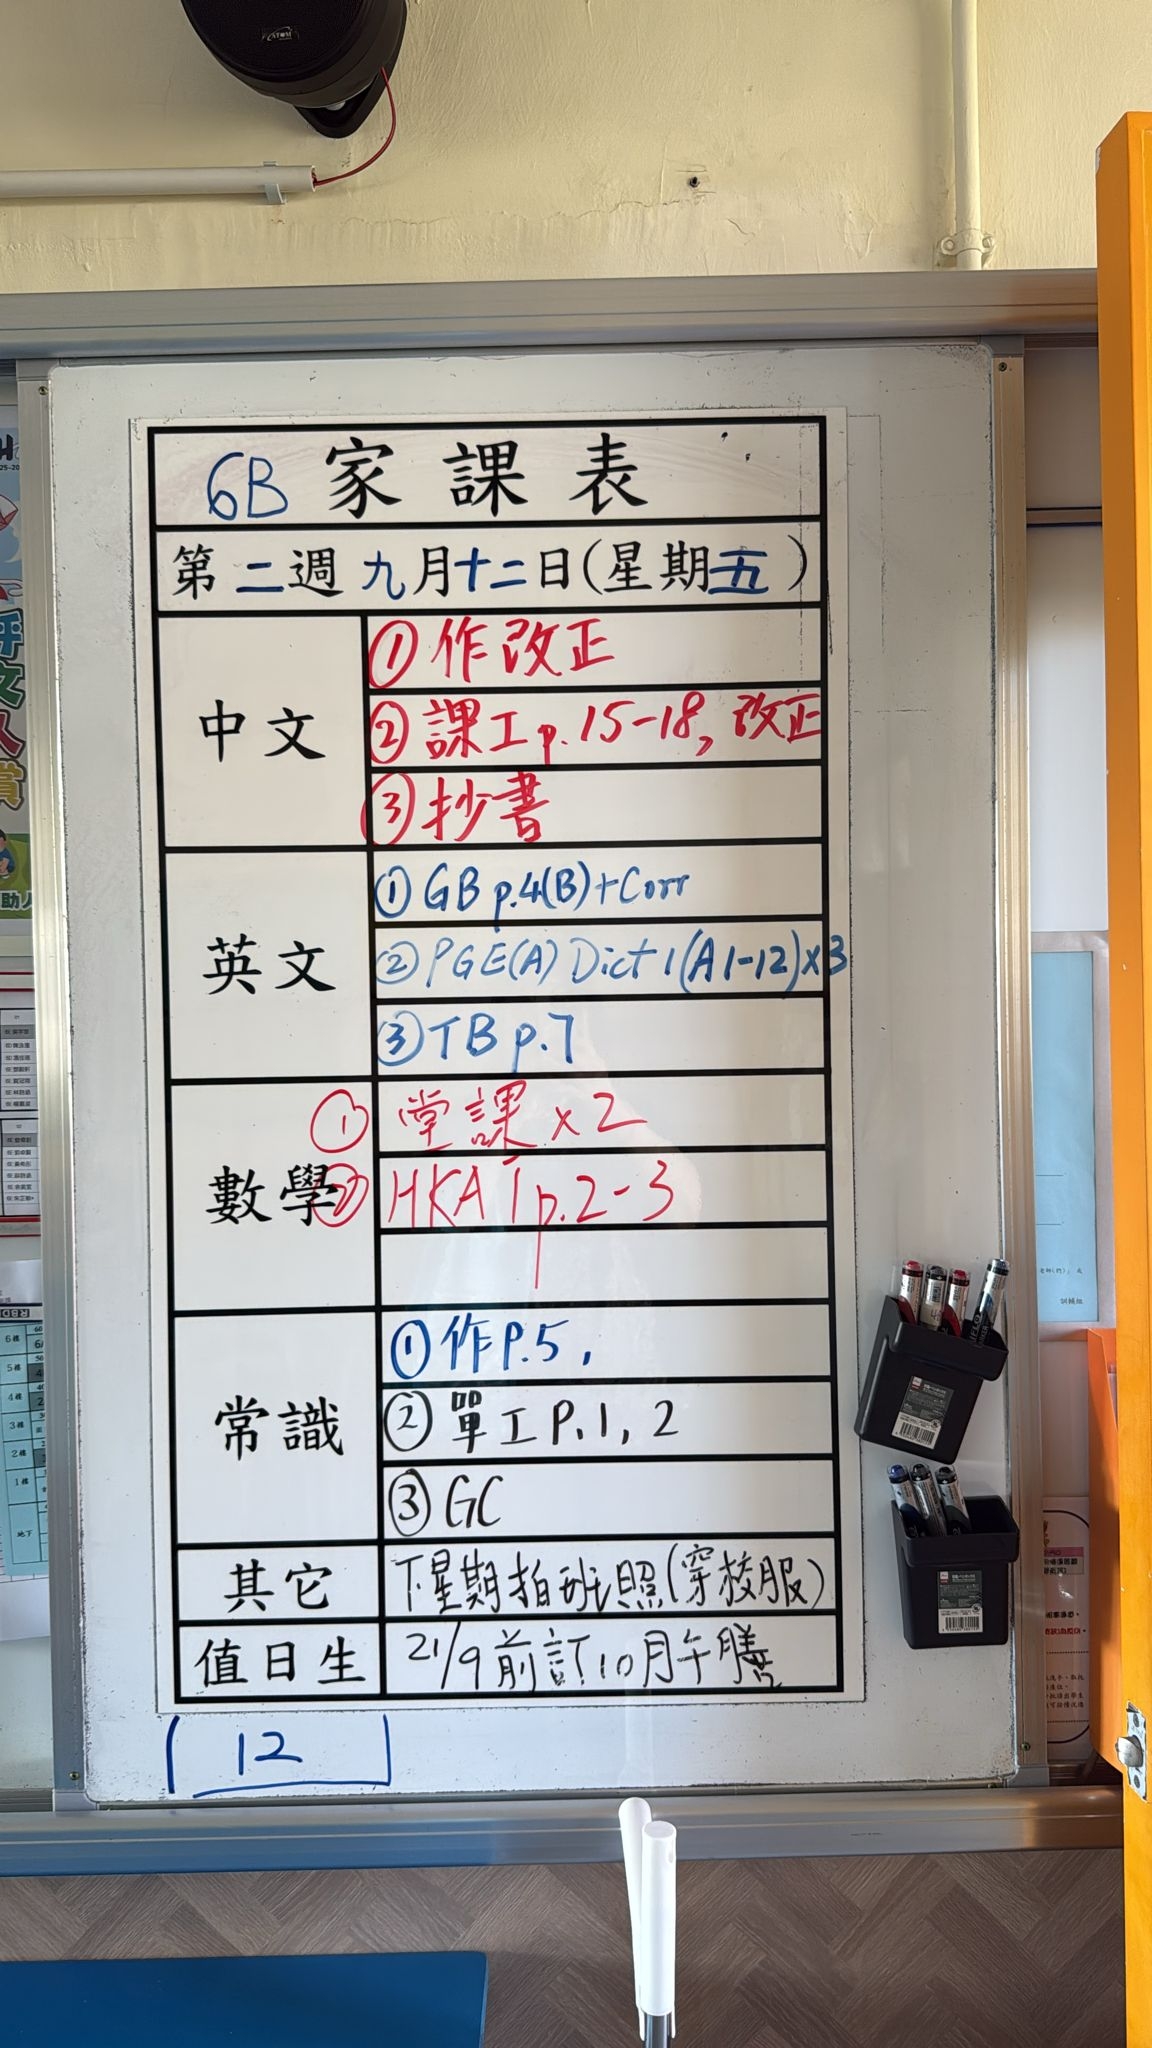 ATOM
6B 家課表
第二週九月十二日(星期五)
中文
①作改正
②課工p.15-18, 改正
③抄書
英文
①GB p.4(B)+Corr
②PGE(A) Dict 1(A1-12)x3
③TB p.7
數學
① 堂課 x2
② HKAT p.2-3
常識
①作P.5,
②單工P.1, 2
③GC
其它
下星期拍班照(穿校服)
值日生
21/9前訂10月午膳
12